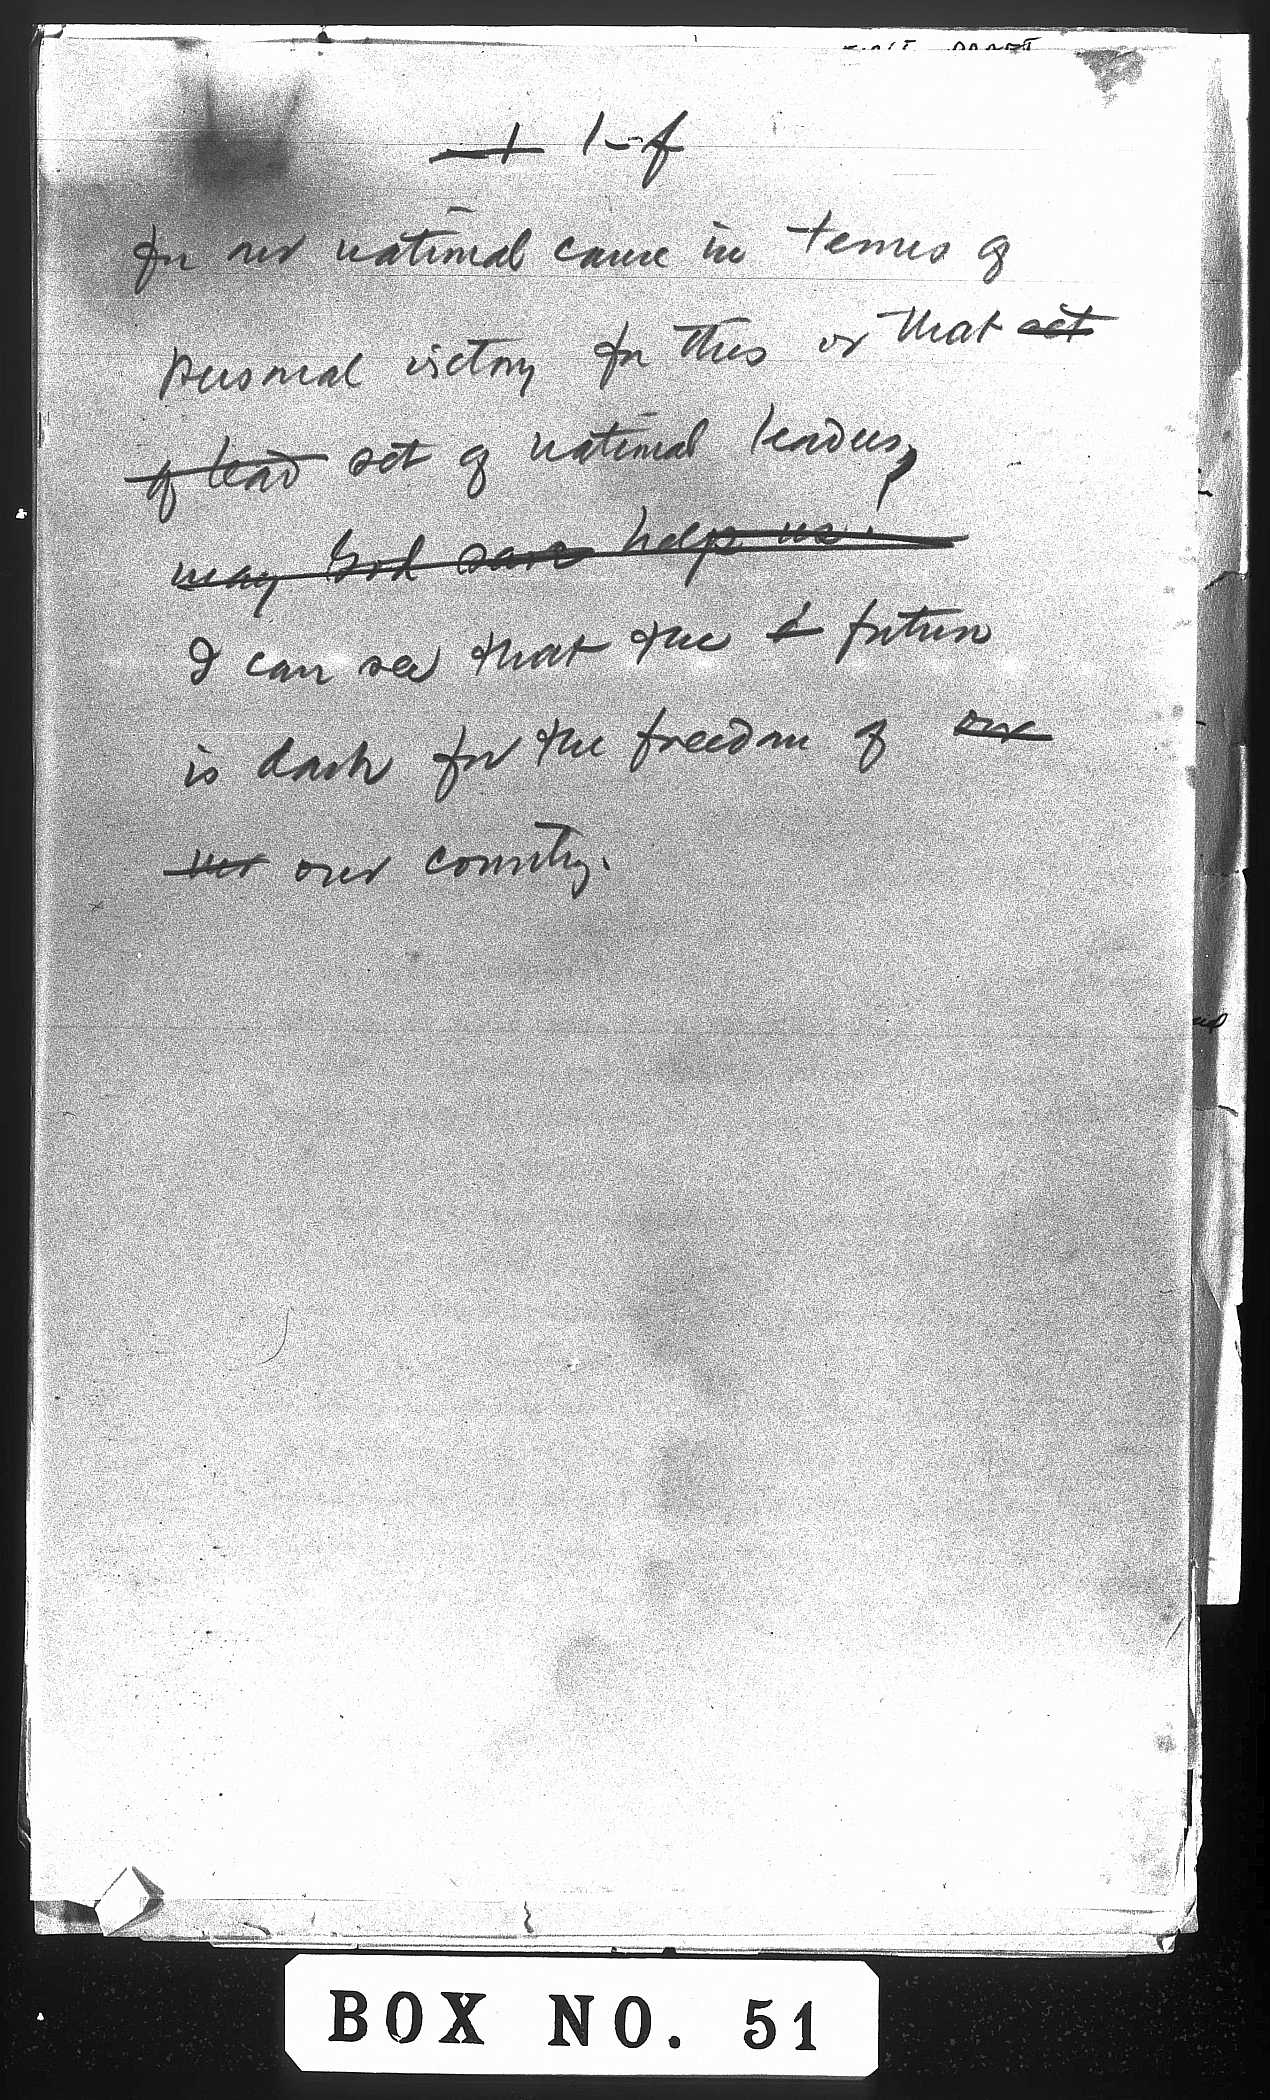 1 1-f
for our national cause in terms of
personal victory for this or that set
of lead set of national leaders,
may God save help us.
I can see that the d future
is dark for the freedom of our
our country.
BOX NO. 51